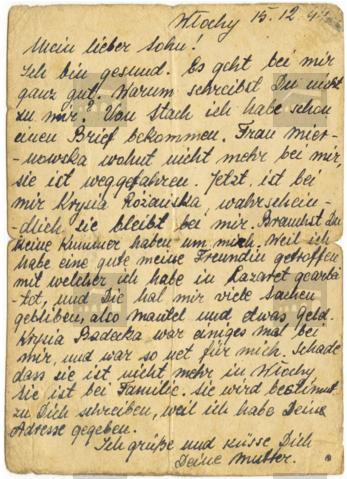 Włochy 15.12.44
Mein lieber Sohn!
Ich bin gesund. Es geht bei mir
ganz gut. Warum schreibst Du nicht
zu mir? Von Stach ich habe schon
einen Brief bekommen. Frau Mier-
-nowska wohnt nicht mehr bei mir,
sie ist weggefahren. Jetzt, ist bei
mir Krysia Różańska, wahrschein-
dlich sie bleibt bei mir. Brauchst Du
keine Kummer haben um mich. Weil ich
habe eine gute meine Freundin getroffen
mit welcher ich habe in Lazaret gearbei-
tot, und Die hal mir viele Sachen
gebliben, also Mantel und etwas geld.
Krysia Badecka war einiges mal bei
mir, und war so net für mich. Schade
dass sie ist nicht mehr in Włochy
Sie ist bei Familie. Sie wird bestimmt
zu Dich schreiben, weil ich habe Deine
Adresse gegeben.
Ich grüße und küsse Dich
Deine Mutter.